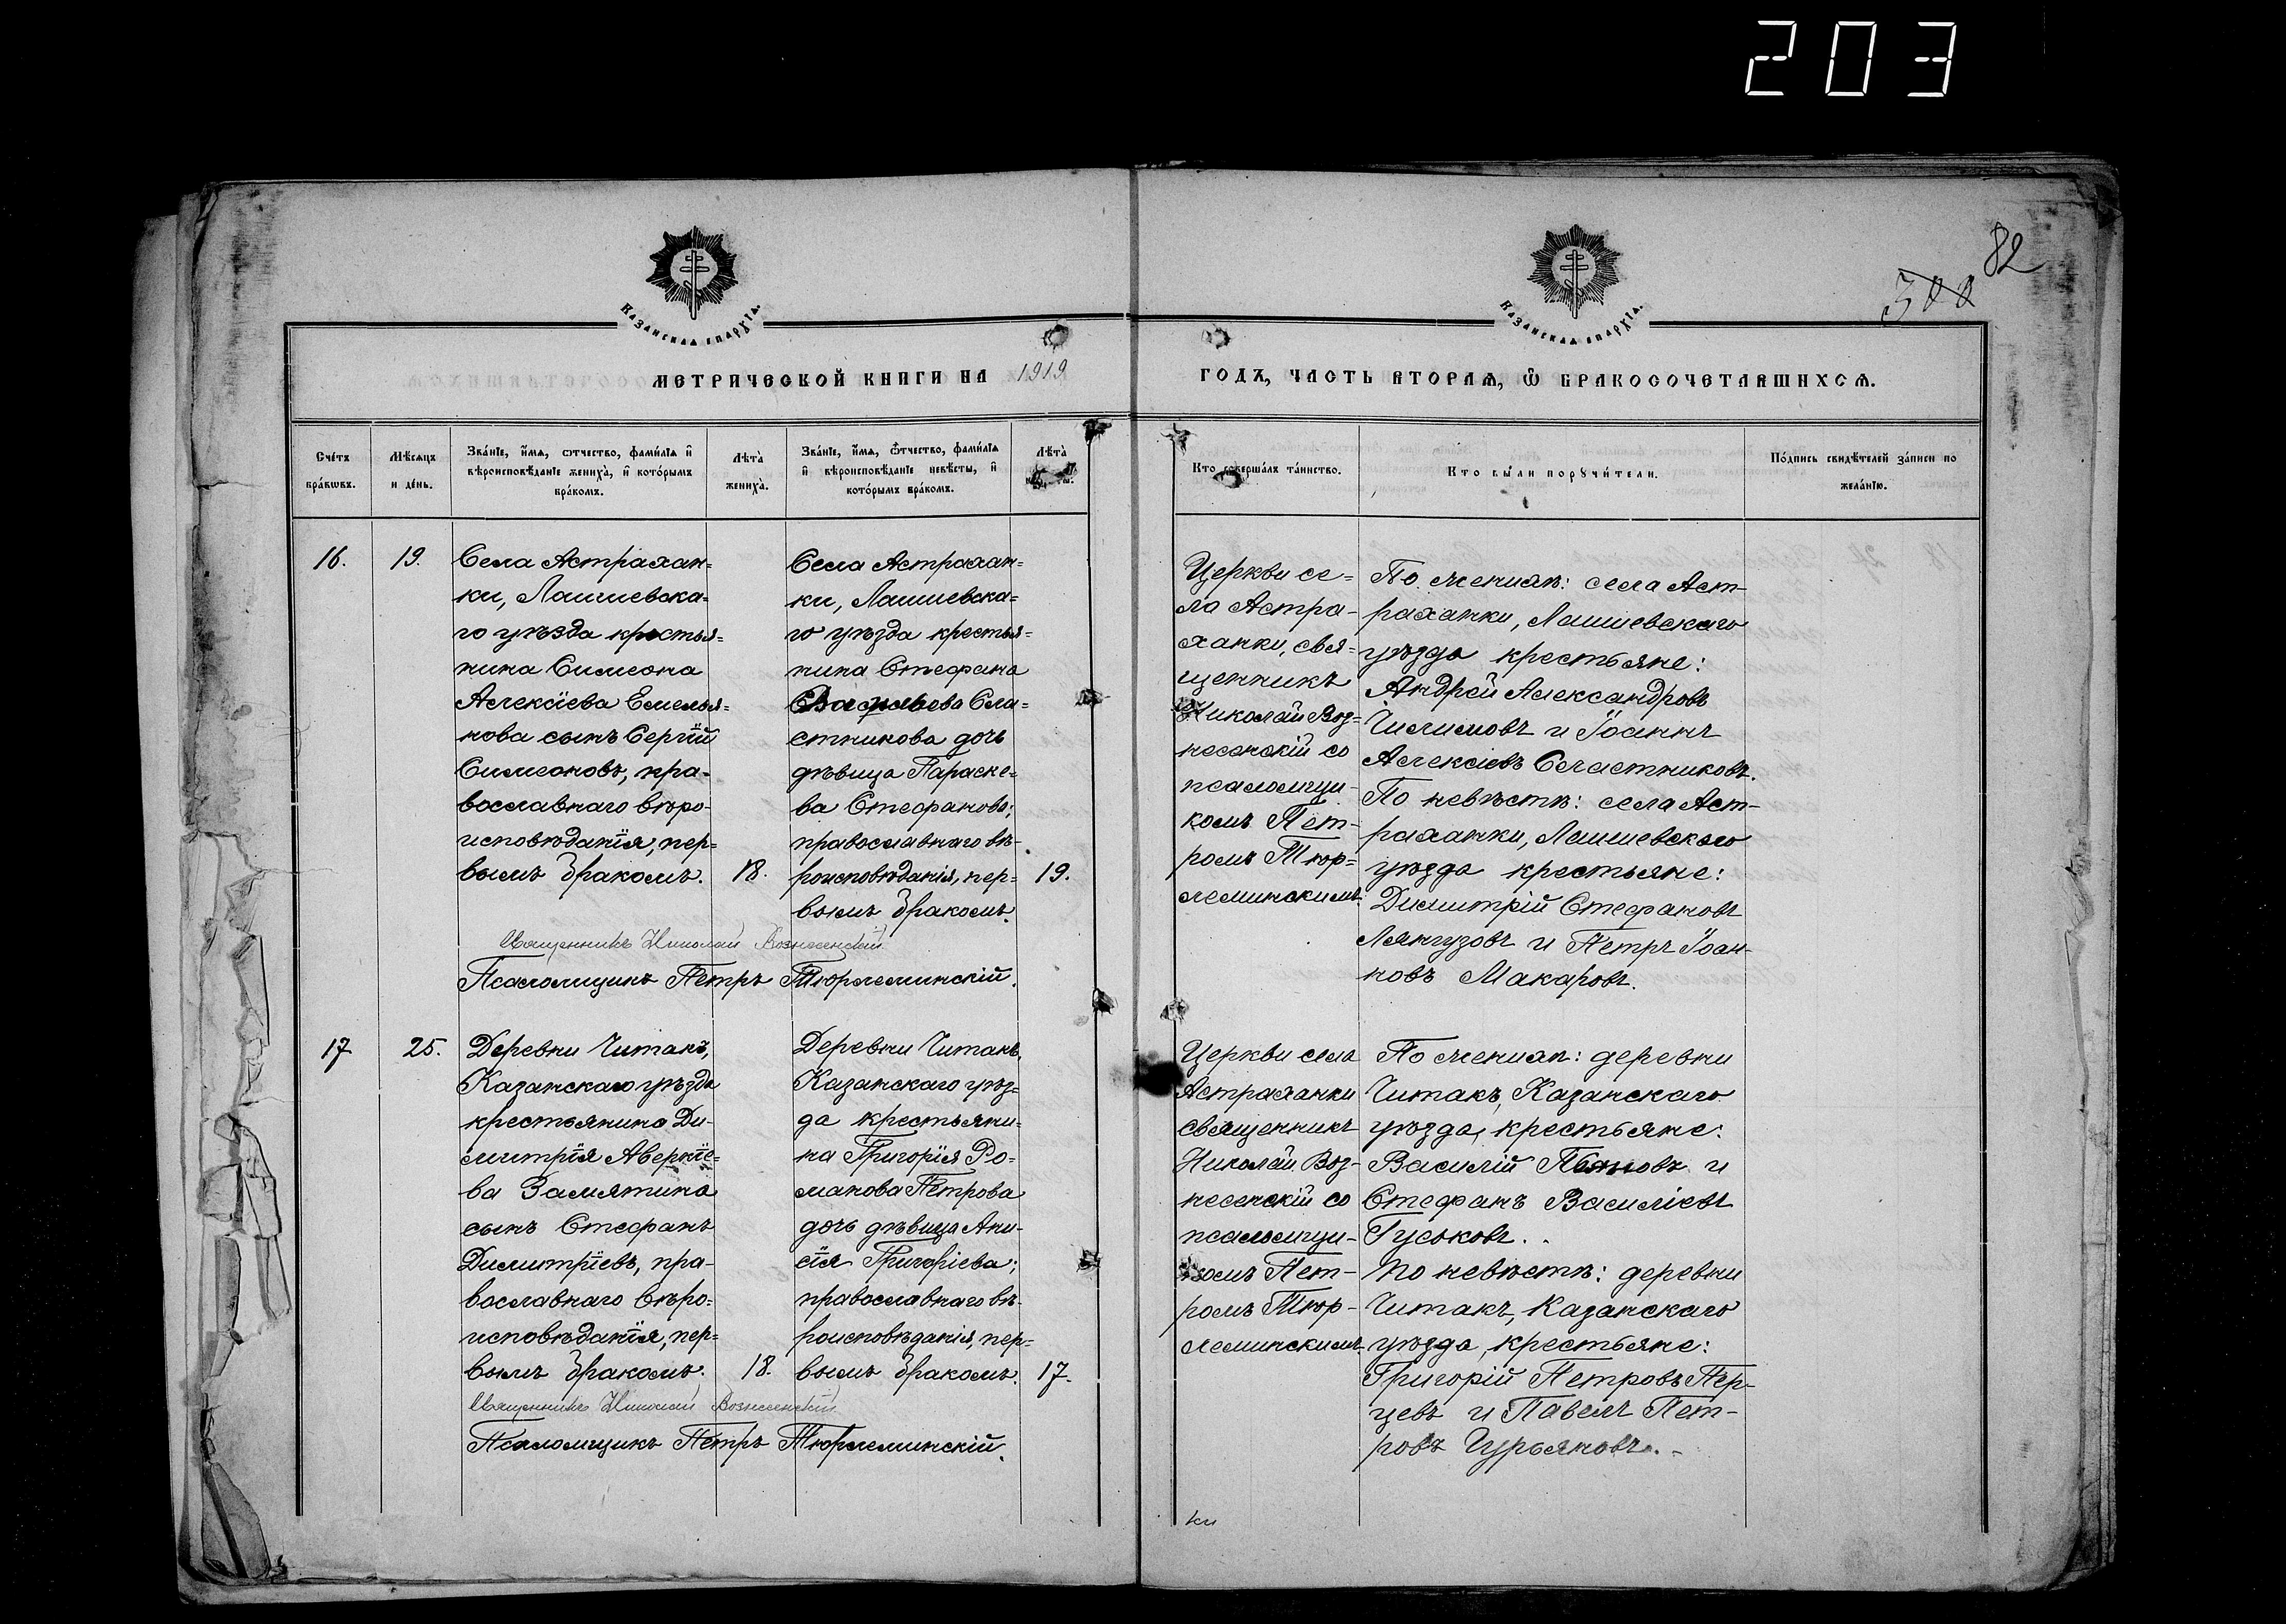 203
82
300
КАЗАНСКАѦ ЕПАРХІѦ.
КАЗАНСКАѦ ЕПАРХІѦ.
МЕТРИЧЕСКОЙ КНИГИ НА 1919
ГОДЪ, ЧАСТЬ ВТОРАѦ, Ѿ БРАКОСОЧЕТАВШИХСѦ.
Сче́тъ бра́кѡвъ.
Мѣ́сѧцъ и де́нь.
Зва́нїе, и́мѧ, ѻтчество, фами́лїѧ и
вѣроисповѣ́данїе жениха̀, и кото́рымъ
бра́комъ.
Лѣта̀
жениха̀.
Зва́нїе, и́мѧ, ѻтчество, фами́лїѧ
и вѣроисповѣ́данїе невѣ́сты, и
кото́рымъ бра́комъ.
Лѣта̀
Кто соверша́лъ та́инство.
Кто бы́ли порꙋчи́тели.
По́дпись свидѣ́телей за́писи по
жела́нїю.
16.
19.
Села Астрахан=
ки, Лаишевска=
го уѣзда крестья=
нина Симеона
Алексіева Емелья=
нова сынъ Сергій
Симеоновъ, пра=
вославнаго вѣро-
исповѣданія, пер=
вымъ бракомъ.
18.
Села Астрахан=
ки, Лаишевска=
го уѣзда крестья=
нина Стефана
Сла=
стникова дочь
дѣвица Параске=
ва Стефанова;
православнаго вѣ-
роисповѣданія, пер=
вымъ бракомъ.
19.
Священникъ Николай Вознесенскій
Псаломщикъ Петръ Тюрлеминскій.
Церкви се=
ла Астра-
ханки, свя=
щенникъ
Николай Воз=
несенскій со
псаломщи-
комъ Пет-
ромъ Тюр=
леминскимъ.
По женихѣ: села Аст-
раханки, Лаишевскаго
уѣзда крестьяне:
Андрей Александровъ
Чилимовъ и Іоаннъ
Алексіевъ Сластниковъ.
По невѣстѣ: села Аст-
раханки, Лаишевскаго
уѣзда крестьяне:
Димитрій Стефановъ
Лянгузовъ и Петръ Іоан-
новъ Макаровъ.
17
25.
Деревни Читакъ,
Казанскаго уѣзда
крестьянина Ди-
митрія Аверкіе=
ва Замятина
сынъ Стефанъ
Димитріевъ, пра-
вославнаго вѣро=
исповѣданія, пер=
вымъ бракомъ.
18.
Деревни Читакъ,
Казанскаго уѣз=
да крестьяни=
на Григорія Ро=
манова Петрова
дочь дѣвица Ани-
сія Григоріева;
православнаго вѣ-
роисповѣданія, пер=
вымъ бракомъ.
17.
Священникъ Николай Вознесенскій
Псаломщикъ Петръ Тюрлеминскій.
Церкви села
Астраханки
священникъ
Николай Воз-
несенскій со
псаломщи-
комъ Пет-
ромъ Тюр-
леминскимъ.
По женихѣ: деревни
Читакъ, Казанскаго
уѣзда, крестьяне:
Василій и
Стефанъ Василіевъ
Гуськовъ.
По невѣстѣ: деревни
Читакъ, Казанскаго
уѣзда, крестьяне:
Григорій Петровъ Пер-
цевъ и Павелъ Пет-
ровъ Гурьяновъ.
ки